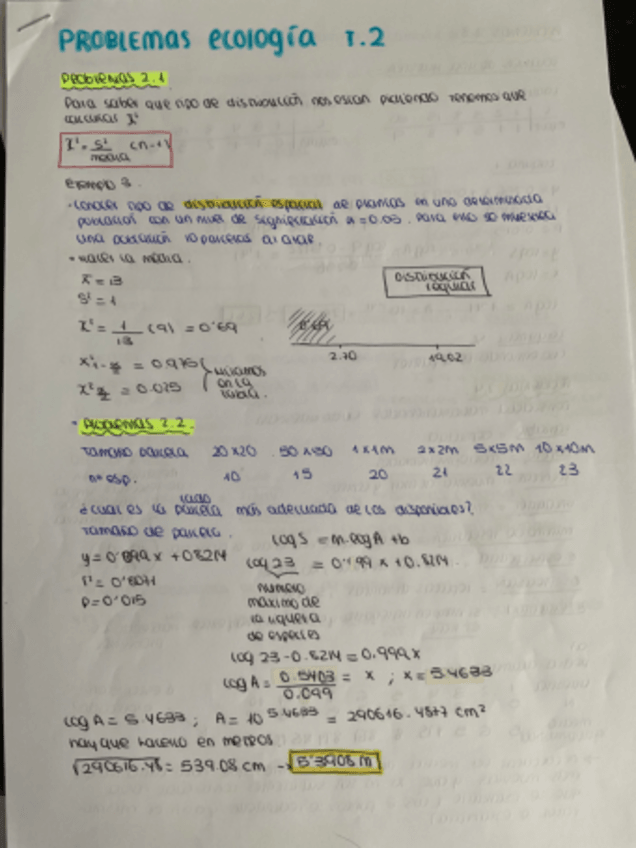 PROBLEMAS ecología T.2
PROBLEMAS 2.1
Para saber que tipo de distribución nos están pidiendo tenemos que
calcular χ²
χ² = S²/media (n-1)
Ejemplo 3.
• Conocer tipo de distribución espacial de plantas en una determinada
población con un nivel de significación α = 0.05. Para esto se muestrea
una población 10 parcelas al azar.
• Hacer la media.
x̄ = 13
S² = 1
Distribución regular
χ² = 1/13 (9) = 0'69
0.69
2.70 19.02
χ² 1-α/2 = 0.975
χ² α/2 = 0.025
en la
tabla.
• PROBLEMAS 2.2.
Tamaño parcela 20x20 50x50 1x1m 2x2m 5x5m 10x10m
nº esp. 10 15 20 21 22 23
lado
¿cuál es la parcela más adecuada de las disponibles?
Tamaño de parcela.
log S = m·log A + b
y = 0'099x + 0.8214
log 23 = 0'099x + 0.8214
P = 0'015
número
máximo de
la riqueza
de especies
log 23 - 0.8214 = 0.099x
log A = 0.5403/0.099 = x ; x = 5.4633
log A = 5.4633 ; A = 10^5.4633 = 290616.4847 cm²
hay que hacerlo en metros
√290616.48 = 539.08 cm → 5'3908 m